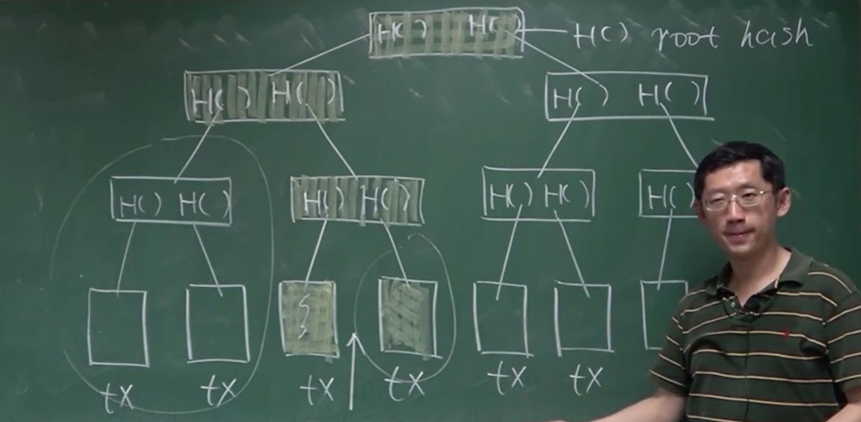 H( ) H( ) H( ) root hash
H( ) H( ) H( ) H( )
H( ) H( ) H( ) H( ) H( ) H( ) H( )
tx tx tx tx tx tx